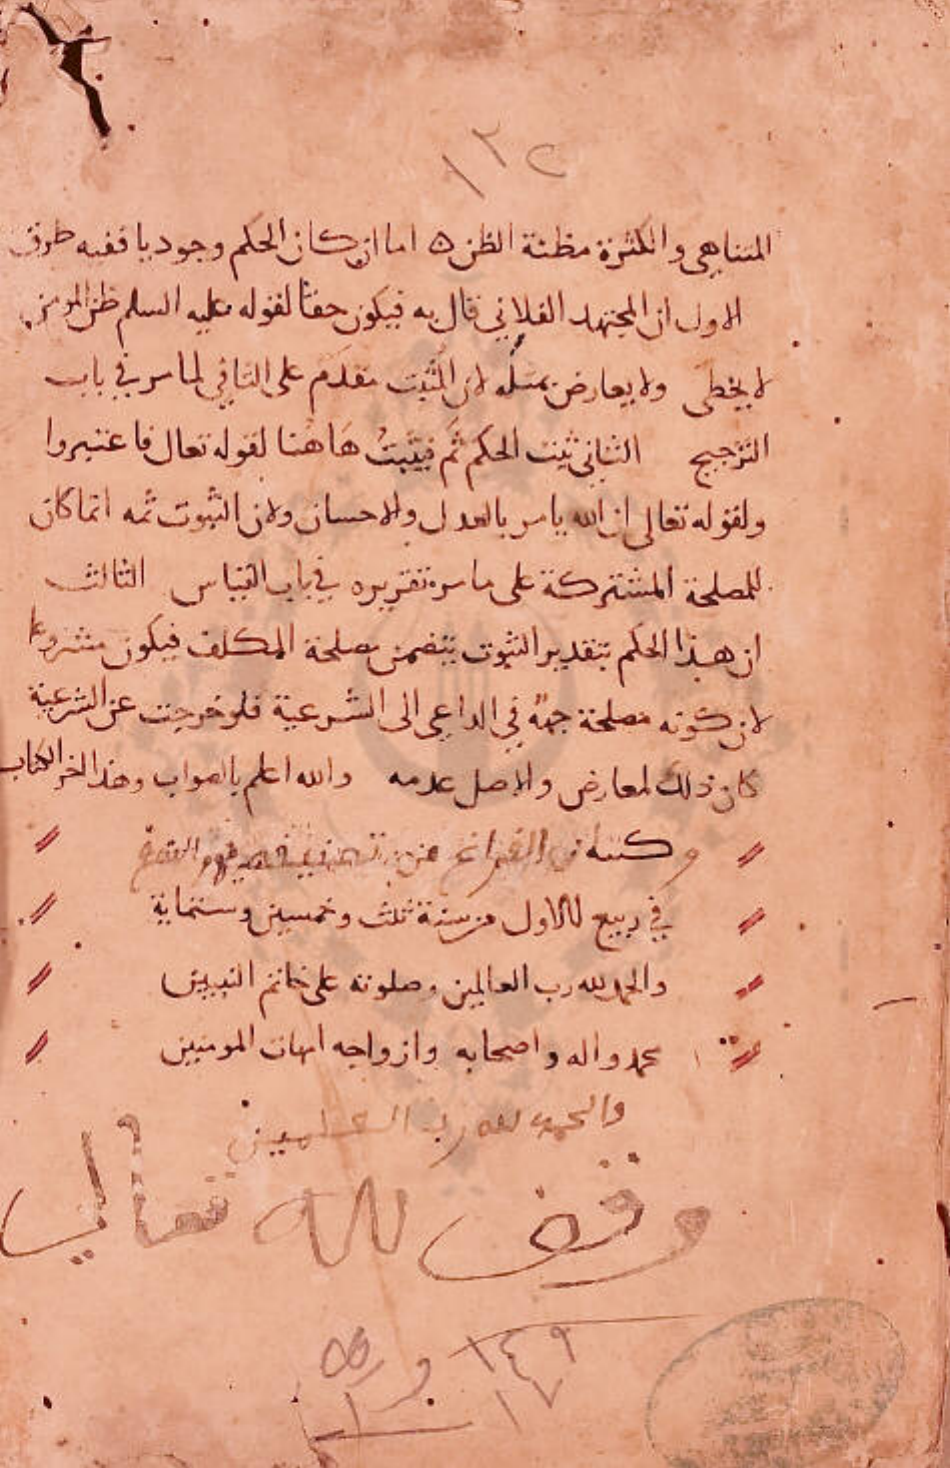 ١٣٢
المتناهي والكثرة مظنة الظن ه اما ان كان الحكم وجوديا ففيه طرق
الاول ان المجتهد الفلاني قال به فيكون حقا لقوله عليه السلم ظن المومن
لا يخطى ولا يعارض بمثله لان المثبت مقدم على النافي لما مر في باب
الترجيح الثاني ثبت الحكم ثم فيثبت هاهنا لقوله تعالى فاعتبروا
ولقوله تعالى ان الله يامر بالعدل والاحسان ولان الثبوت ثمه انما كان
للمصلحة المشتركة على ما مر تقريره في باب القياس الثالث
ان هذا الحكم بتقدير الثبوت يتضمن مصلحة المكلف فيكون مشروعا
لان كونه مصلحة جهة في الداعي الى الشرعية فلو خرجت عن الشرعية
كان ذلك لمعارض والاصل عدمه والله اعلم بالصواب وهذا اخر الكتاب
وكتبه الفراغ من
في ربيع الاول من سنة ثلث وخمسين وستماية
والحمد لله رب العالمين وصلوته على خاتم النبيين
محمد واله واصحابه وازواجه امهات المومنين
والحمد لله رب العلمين
وقف لله تعالى
١٤٩ ورقه
١٧